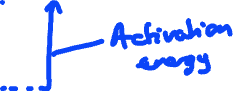 Activation
energy